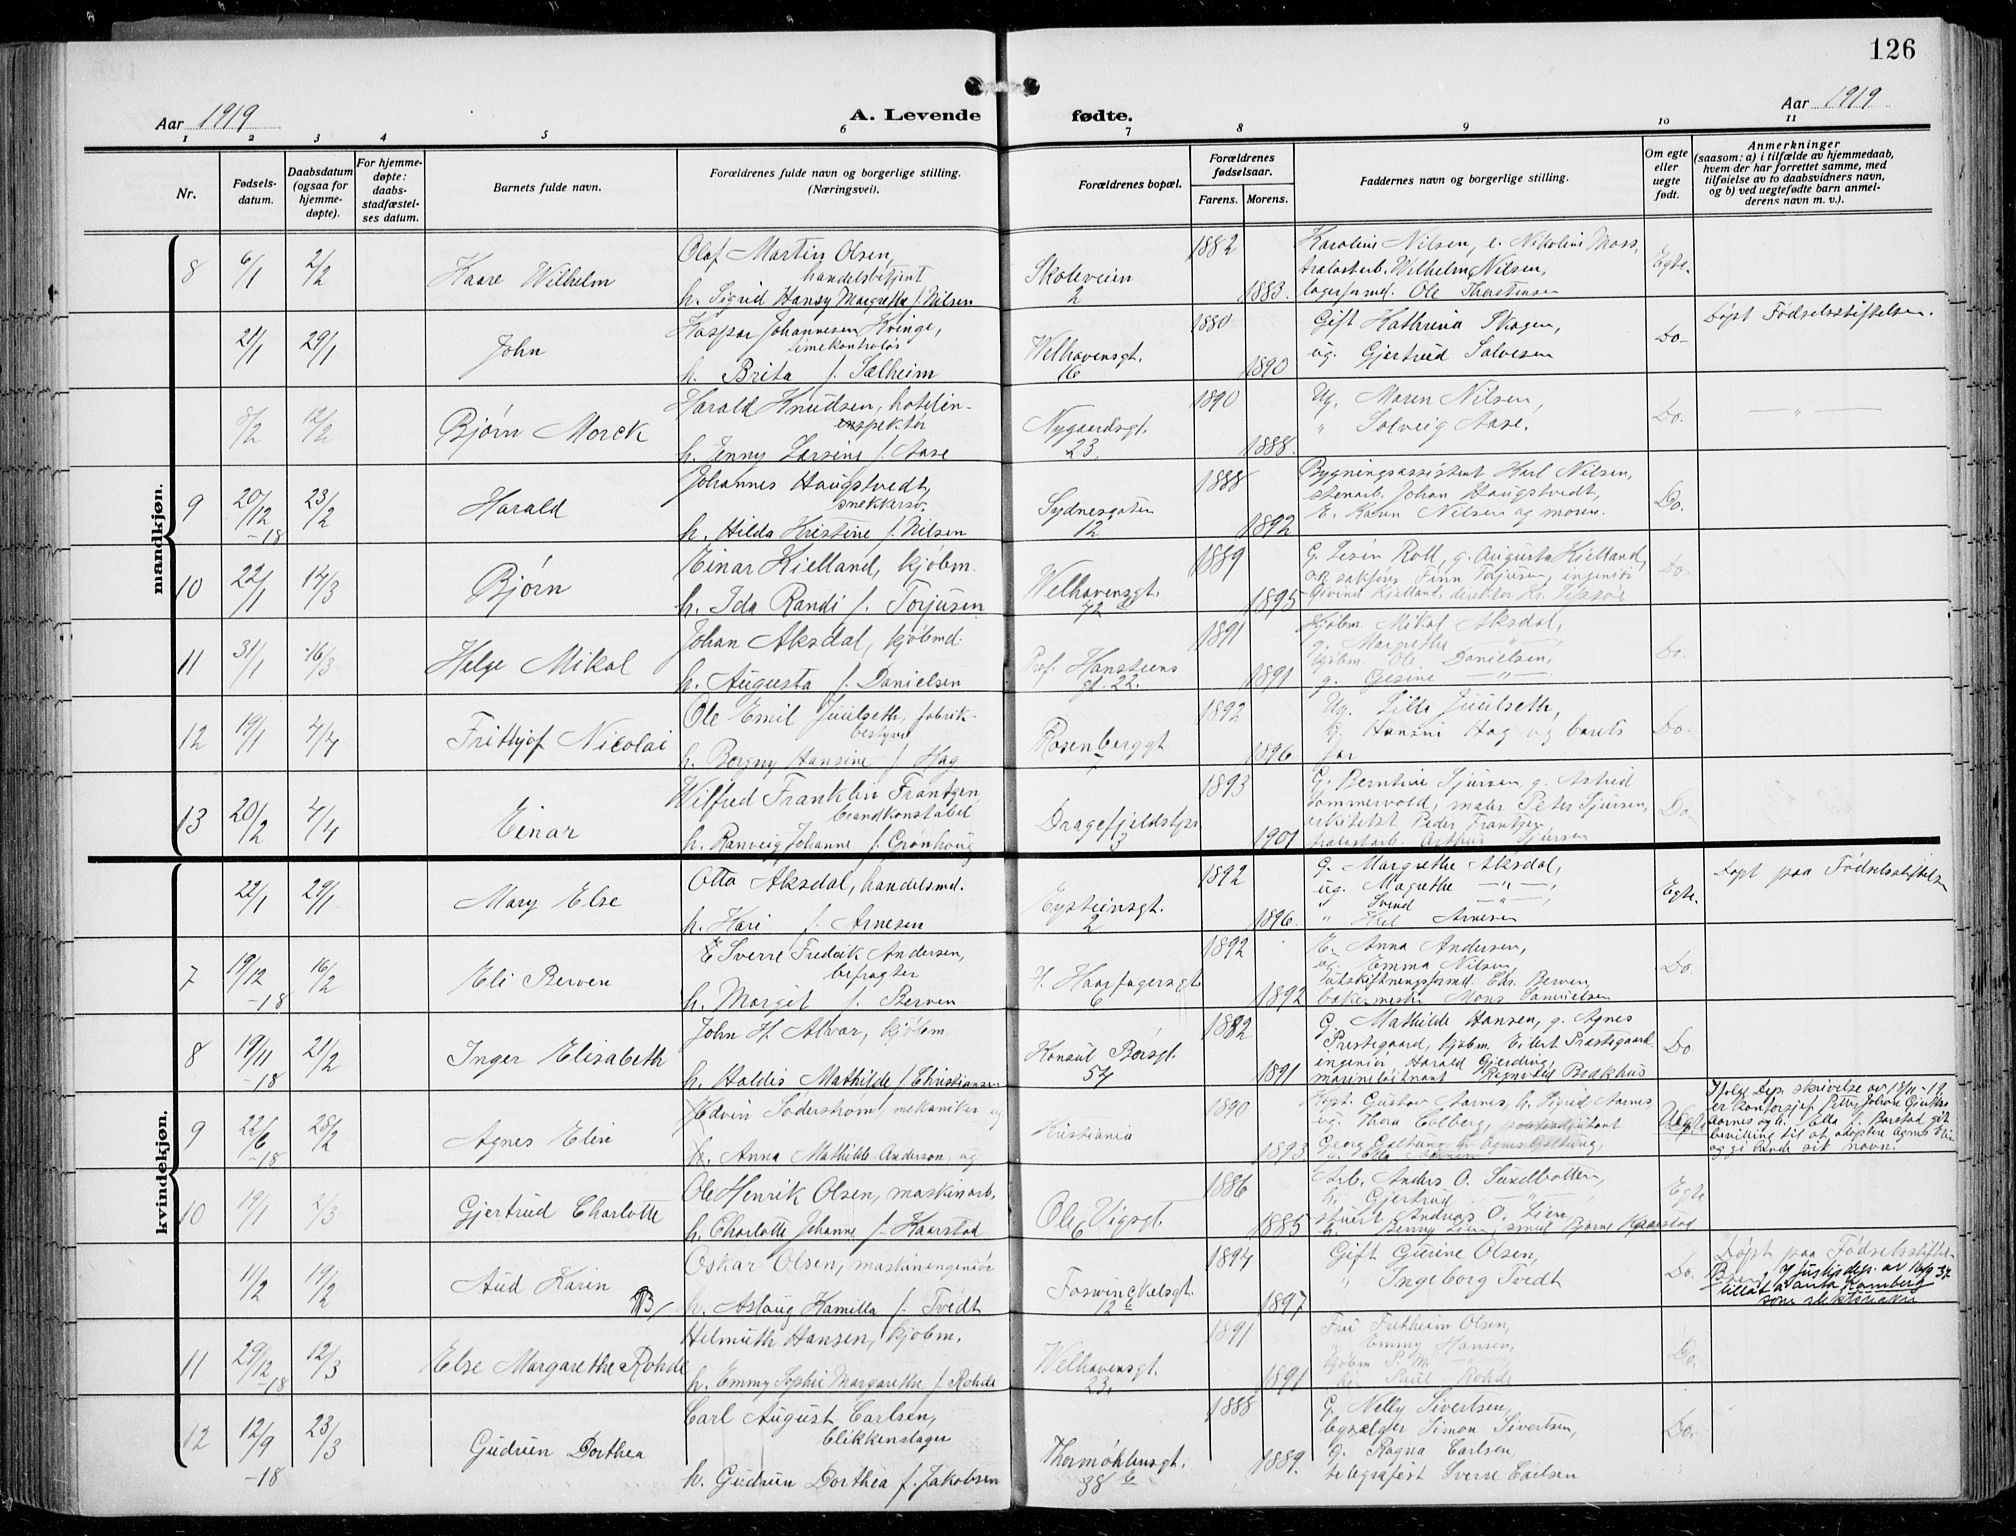 126
Aar 1919
A. Levende fødte.
Aar 1919
1 2 3 4 5 6 7 8 9 10 11
Nr.
Fødsels-
datum.
Daabsdatum
(ogsaa for
hjemme-
døpte).
For hjemme-
døpte:
daabs-
stadfæstel-
ses datum.
Barnets fulde navn.
Forældrenes fulde navn og borgerlige stilling.
(Næringsvei).
Forældrenes bopæl.
Forældrenes
fødselsaar.
Farens. Morens.
Faddernes navn og borgerlige stilling.
Om egte
eller
uegte
født.
Anmerkninger
(saasom: a) i tilfælde av hjemmedaab,
hvem der har forrettet samme, med
tilføielse av to daabsvidners navn,
og b) ved uegtefødte barn anmel-
derens navn m. v.).
mandkjøn.
8 6/1 2/2 Haare Wilhelm
Olaf Martin Olsen,
handelsbetjent
h. Sigrid Hansy Margrethe f. Nilsen
Skoleveien
2
1882 1883.
Karoline Nilsen, e. Nikoline Moss,
Wilhelm Nilsen,
lagerformd. Ole
Egte.
21/1 29/1 John
Kaspar Johannesen Kvinge,
timekontrolør
h. Brita f. Sælheim
Welhavensgt.
16
1880 1890
Gift Kathrina Skagen,
ug. Gjertrud Salvesen
Do-
Døpt Fødselsstiftelsen.
8/2 12/2 Bjørn Morck
Harald Knudsen, hotelin-
spektør
h. Jenny Larsine f. Aase
Nygaardsgt.
23.
1890 1888.
Ug. Maren Nilsen,
" Solveig Aase.
Do.
— " —
9 20/12 -18 23/2 Harald
Johannes Haugstvedt,
snekkersv.
h. Hilda Kristine f. Nilsen
Sydnesgaten
12
1888 1892
Bygningsassistent Karl Nilsen,
stenarb. Johan Haugstvedt,
E. Karen Nilsen og moren.
Do.
10 22/1 17/3 Bjørn
Einar Kielland, kjøbm.
h. Ida Randi f. Torjusen
Welhavensgt.
72
1889 1895
Roll, g. Augusta Kielland,
sakfører Finn Torjusen, ingeniør
Eivind Kielland, direktør
Do.
11 31/1 16/3 Helge Mikal
Johan Aksdal, kjøbmd.
h. Augusta f. Danielsen
Prof. Hansteens
gt. 22.
1891 1891
Kjøbm. Mikal Aksdal,
g. Margrethe — " —
kjøbm. Ole Danielsen,
g. Gesine — " —
Do.
12 19/1 4/4 Frithjof Nicolai
Ole Emil Juulseth, fabrik-
bestyrer
h. Borgny Hansine f. Hag
Rosenberggt
7
1892 1896
Ug. Lilli Juulseth,
g. Hansine Hag og barets
far
Do.
13 20/2 4/4 Einar
Wilfred Franklin Frantzen,
brandkonstabel
h. Ranveig Johanne f. Grønhoug
Dragefjeldstr.
3
1893 1901
G. Berntine Sjursen, g. Astrid
Sommervold, maler Peter Sjursen,
arkitekt Peder Frantzen
Arthur Sjursen
Do.
kvindekjøn.
22/1 29/1 Mary Else
Otto Aksdal, handelsmd.
h. Hari f. Arnesen
Eysteinsgt.
2
1892 1896.
G. Margrethe Aksdal,
ug. Magrethe — " —,
" Svend — " —,
" Arnesen
Egte.
Døpt paa Fødselsstiftelsen
7 19/12 -18 16/2 Eli Berven
Sverre Fredrik Andersen,
befragter
h. Margit f. Berven
H. Haarfagersgt.
6
1892 1892
E. Anna Andersen,
ug. Emma Nilsen,
utskiftningsformd. Chr. Berven,
bakermester Mons Samuelsen
Do.
8 19/11 -18 21/2 Inger Elisabeth
John H. Alvar, kjøbm.
h. Haldis Mathilde f. Christiansen
Konsul Børsgt.
54
1882 1891
G. Mathilde Hansen, g. Agnes
Prestegaard, kjøbm. Eilert Prestegaard
ingeniør Harald Gjerding,
marineløitnant Reinhold Backhus
Do.
9 22/6 -18 28/2 Agnes Elin
Edvin Söderström, mekaniker og
Anna Mathilde Anderson, og
Kristiania
1890 1893
Kapt. Gustav Aarnes, h. Sigrid Aarnes
ug. Thora Colberg,
Georg Galtung h. Agnes Galtung,
Uegte
Ifølge Dep. skrivelse av 13/11-19
er kontorsjef Johan
Aarnes og h. Ella f. Barstad git
bevilling til at adoptere Agnes Elin
og gi hende sit navn.
10 19/1 2/3 Gjertrud Charlotte
Ole Henrik Olsen, maskinarb,
h. Charlotte Johanne f. Kaarstad
Ole Vigsgt.
6
1886 1885
Arb. Anders O. Suxelbotten,
h. Gjertrud — " —
stuert Andreas O. Lien,
h. Jenny Lien, smed Bjarne Kaarstad
Egte
11/2 19/2 Aud Karin
Oskar Olsen, maskiningeniør
h. Aslaug Kamilla f. Tvedt
Foswinckelsgt.
12
1894 1897
Gift Gurine Olsen,
" Ingeborg Tvedt
Do.
Døpt paa Fødselsstiftelsen
Justisdep. av
tillat å anta Ramberg
som slektsnavn
11 29/12 -18 12/3 Else Margarethe Rohde
Helmuth Hansen, kjøbm.
h. Emmy Sophie Margarethe f. Rohde
Welhavensgt.
23.
1891 1891
Fru Frithein Olsen,
" Emmy Hansen,
kjøbm P. M. — " —
kj. Paul Rohde
Do.
12 12/9 -18 23/3 Gudrun Dorthea
Carl August Carlsen,
blikkenslager
h. Gudrun Dorthea f. Jakobsen
Thormøhlensgt.
38 b
1888 1889.
G. Nelly Sivertsen,
bysælger Simon Sivertsen,
g. Ragna Carlsen,
telegrafist Sverre Carlsen
Do.